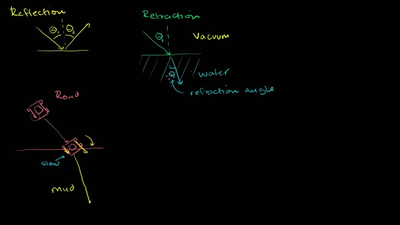 Reflection
θi θr
Refraction
θi
Vacuum
θr
water
refraction angle
Road
slow
mud